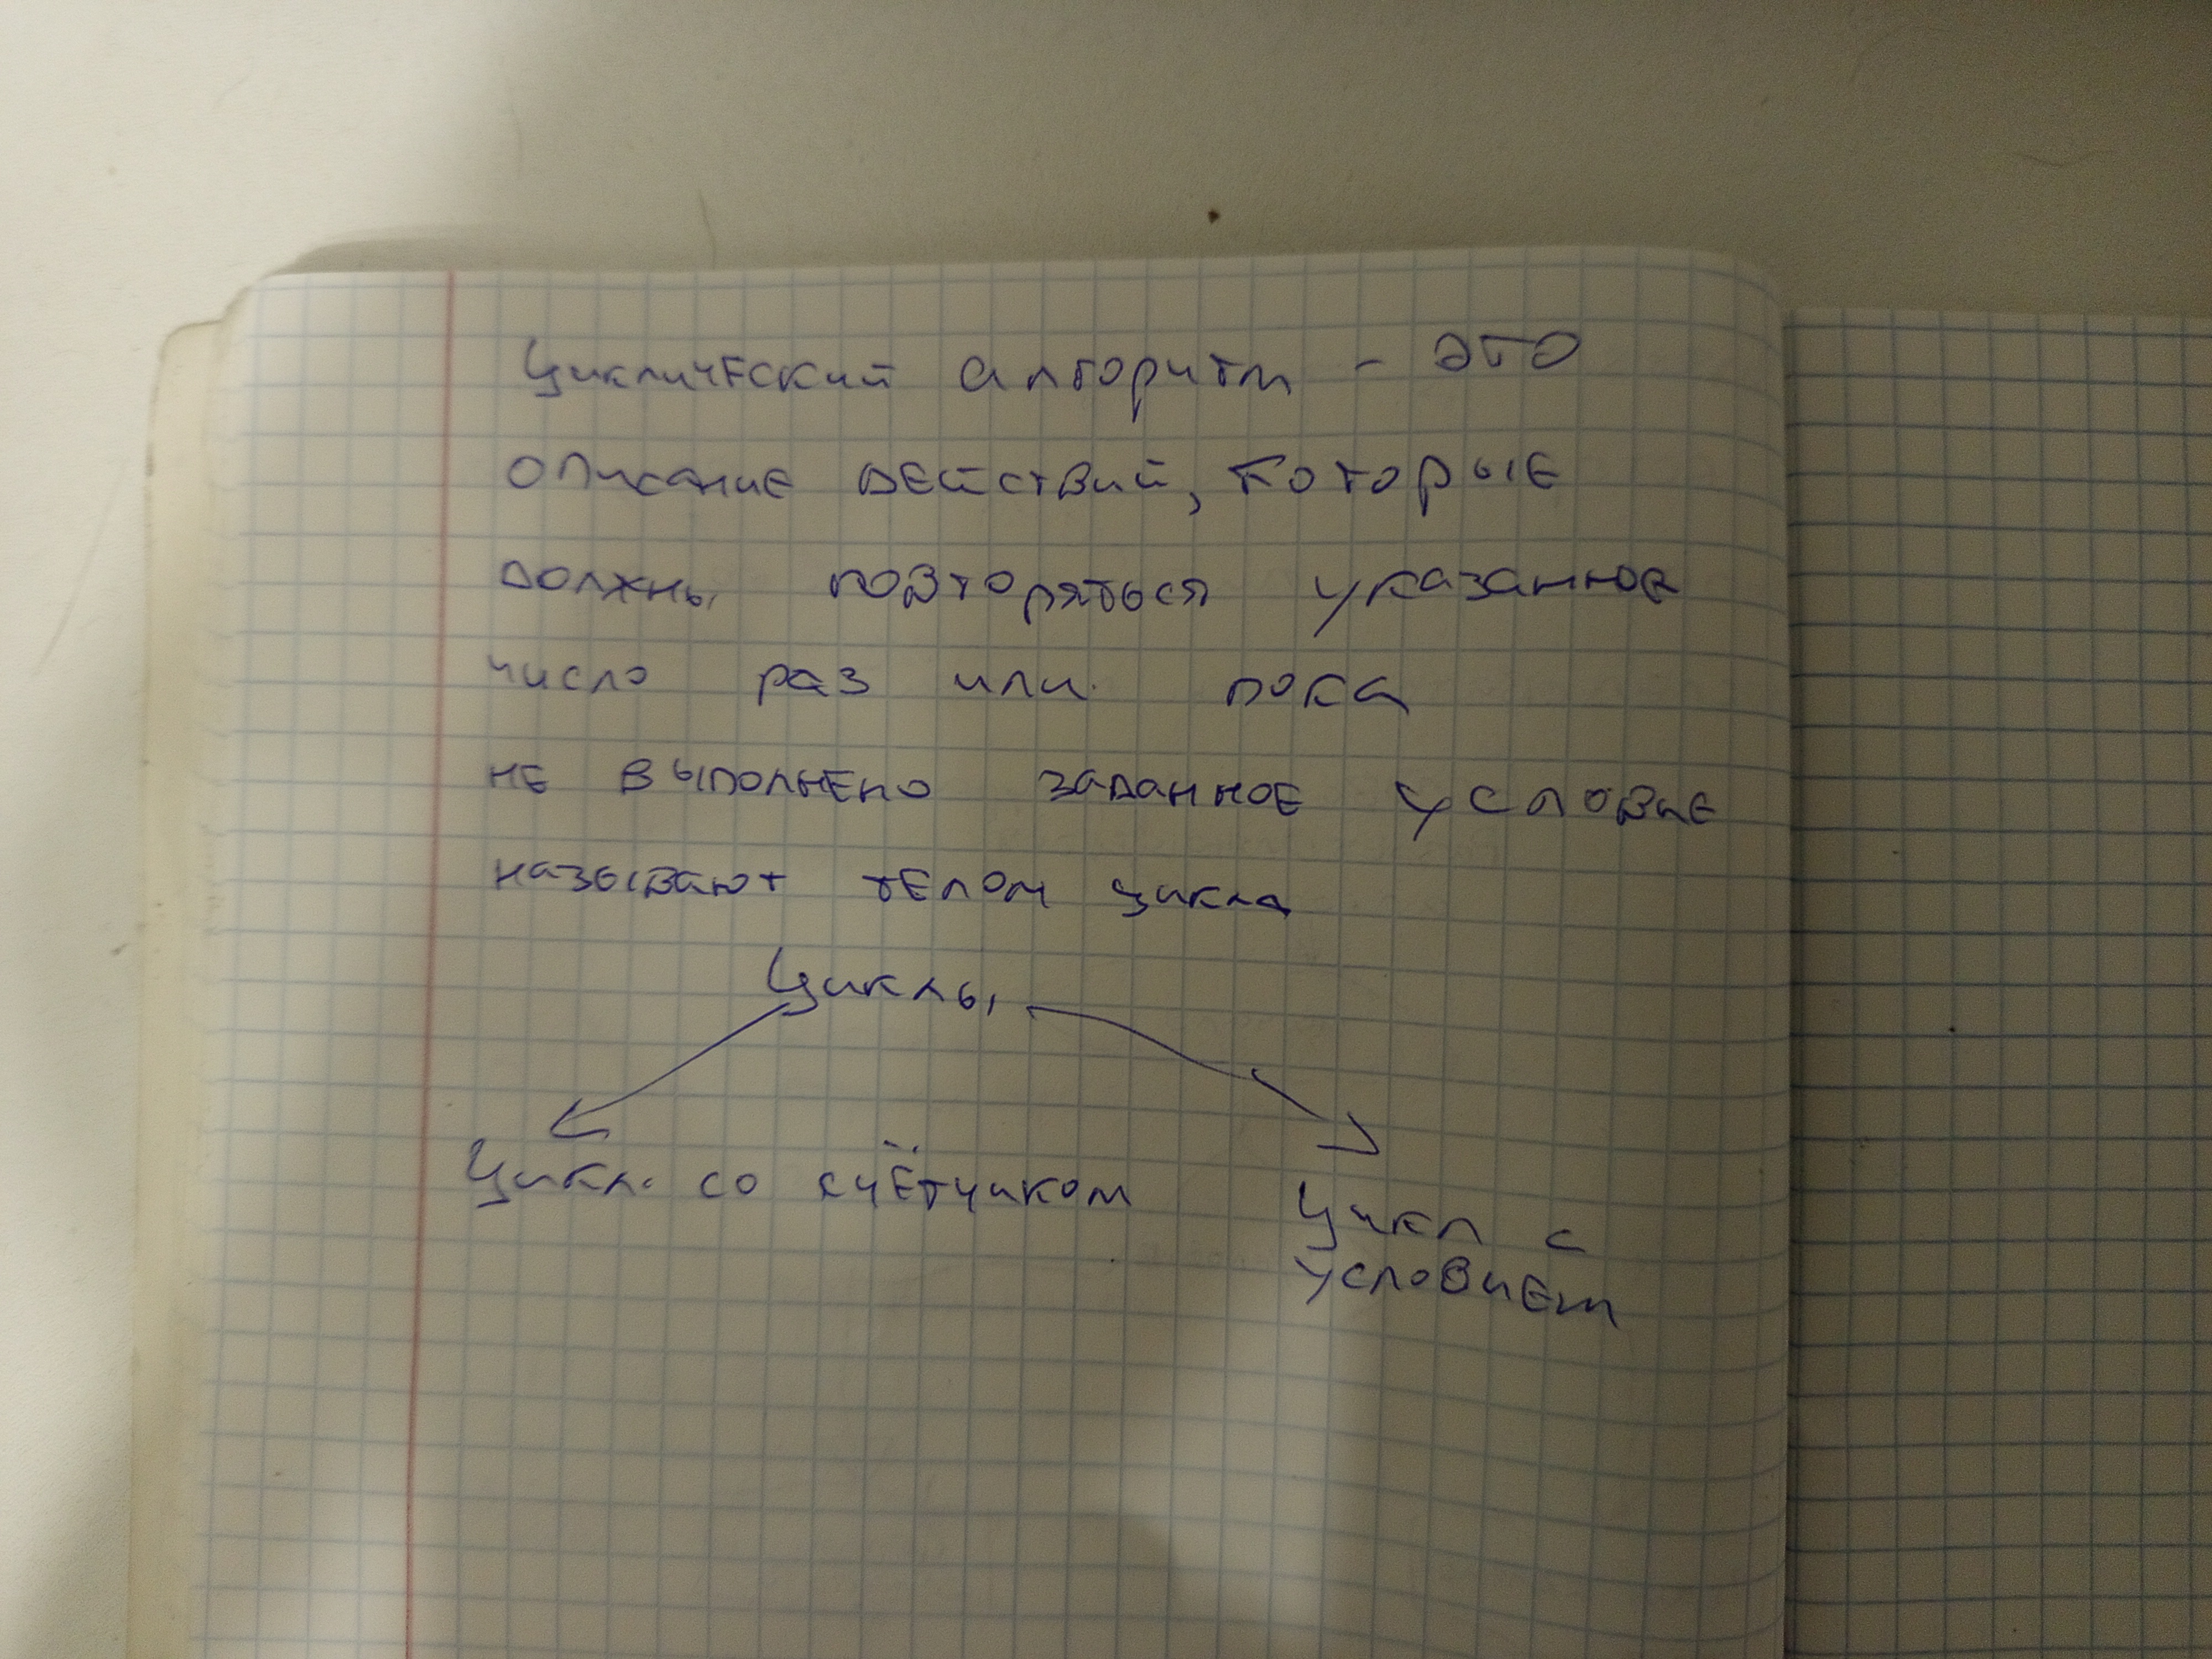 Циклический алгоритм - это
описание действий, которые
должны повторяться указанное
число раз или пока
не выполнено заданное условие
называют телом цикла
Циклы
Цикл со счётчиком
Цикл с
условием